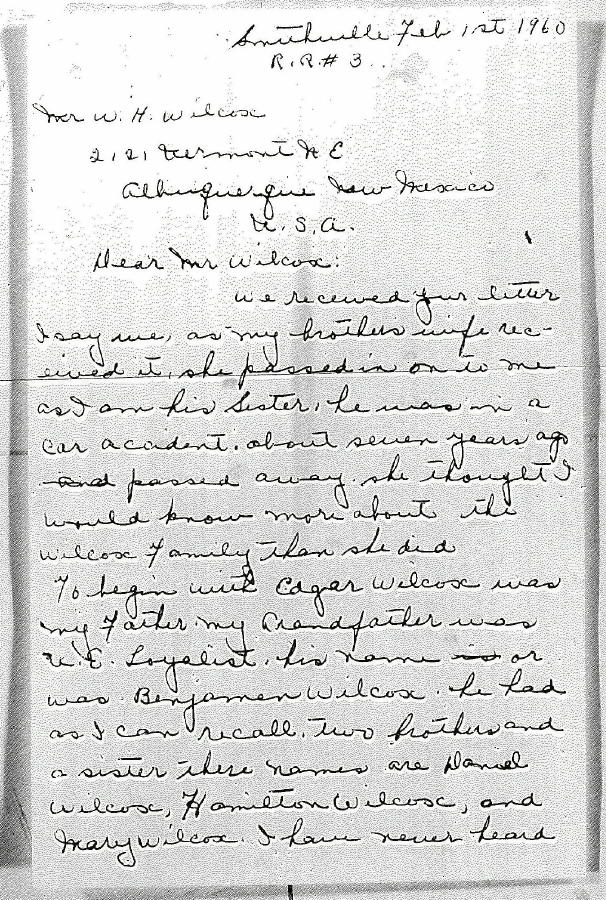 Smithville Feb 1st 1960
R.R. # 3..
Mr W. H. Wilcox
2121 Vermont N E
Albuquerque New Mexico
U.S.A.
Dear Mr Wilcox:
We received your letter
I say we, as my brothers wife rec-
eived it, she passed in on to me
as I am his Sister, he was in a
car accident. about seven years ago
and passed away she thought I
would know more about the
Wilcox Family than she did
To begin with Edgar Wilcox was
my Father my Grandfather was
U.E. Loyalist. his name is or
was Benjamen Wilcox. he had
as I can recall, two brothers and
a sister there names are Daniel
Wilcox, Hamilton Wilcox, and
Mary Wilcox. I have never heard